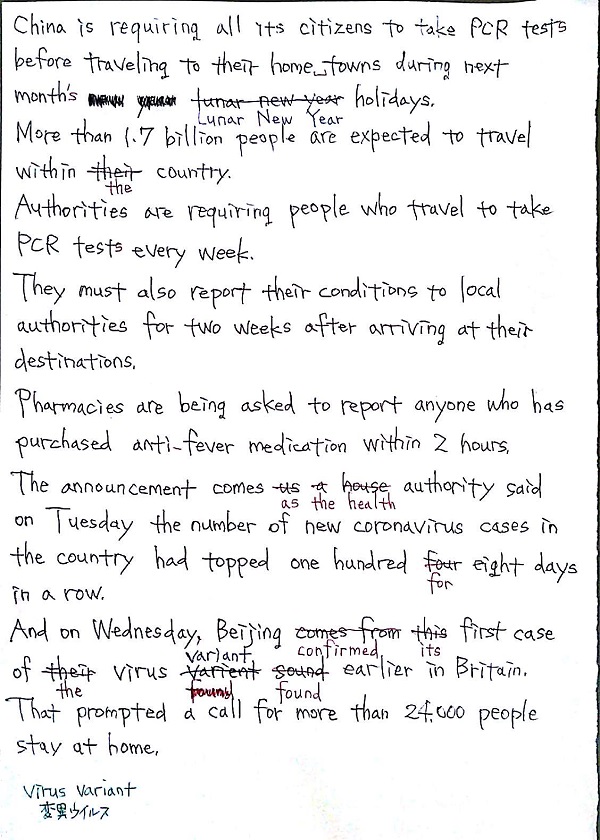 China is requiring all its citizens to take PCR tests
before traveling to their home towns during next
month's lunar new year holidays.
Lunar New Year
More than 1.7 billion people are expected to travel
within their country.
the
Authorities are requiring people who travel to take
PCR tests every week.
They must also report their conditions to local
authorities for two weeks after arriving at their
destinations.
Pharmacies are being asked to report anyone who has
purchased anti-fever medication within 2 hours.
The announcement comes us a house authority said
as the health
on Tuesday the number of new coronavirus cases in
the country had topped one hundred four eight days
for
in a row.
And on Wednesday, Beijing comes from this first case
variant confirmed its
of their virus varient sound earlier in Britain.
the found found
That prompted a call for more than 24,000 people
stay at home.
virus variant
変異ウイルス